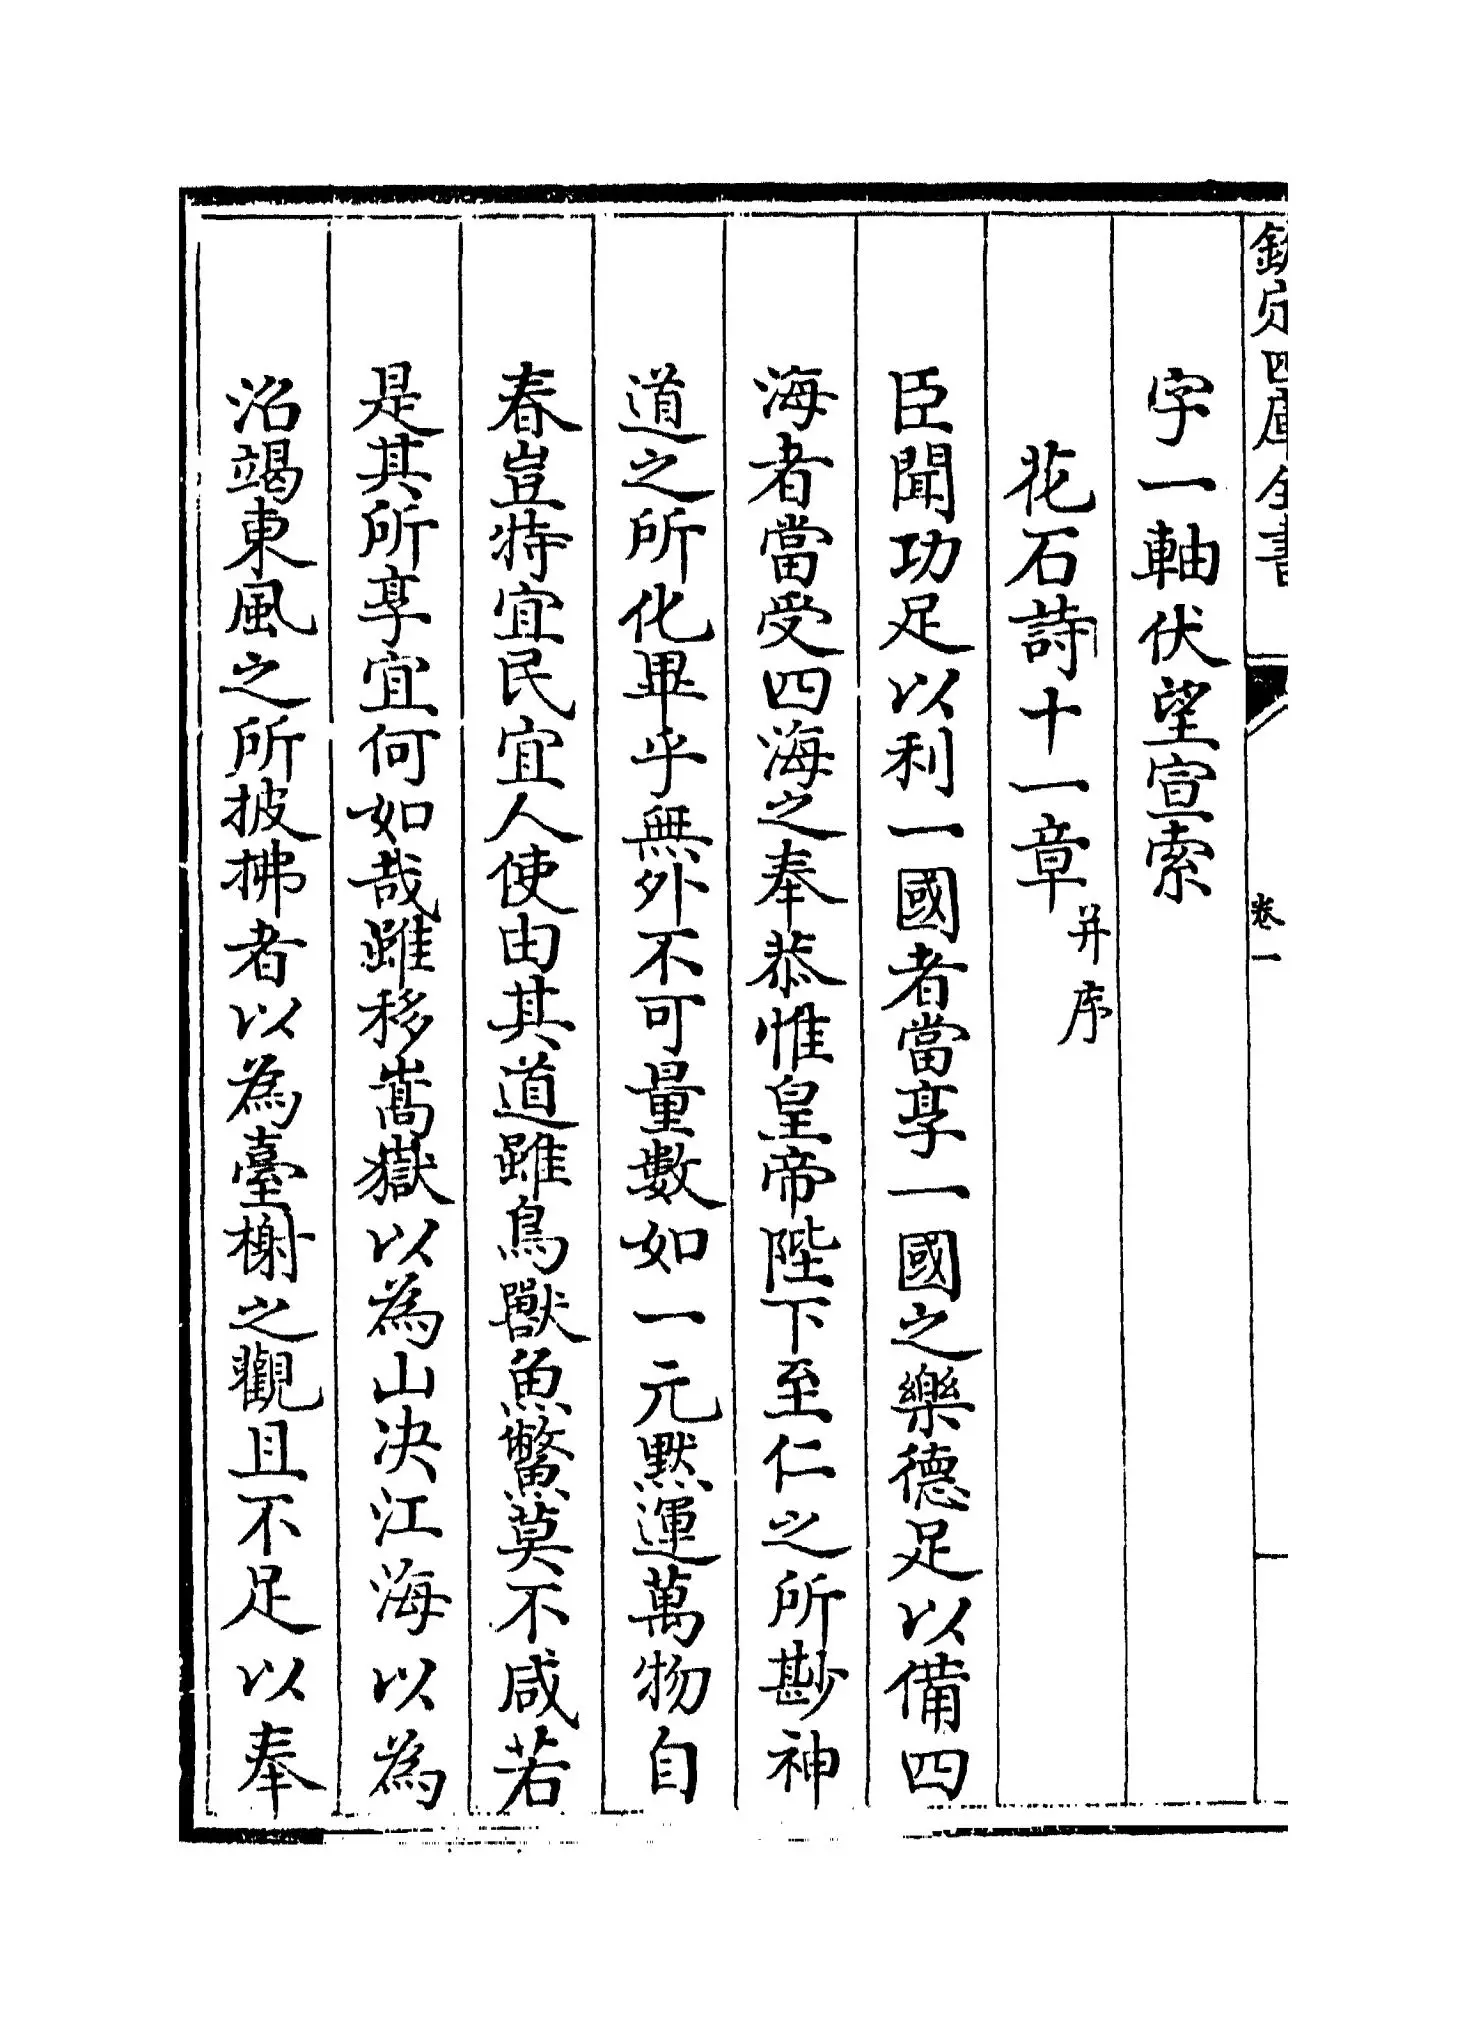 欽定四庫全書
卷一
字一軸伏望宣索
花石詩十一章并序
臣聞功足以利一國者當享一國之樂德足以備四
海者當受四海之奉恭惟皇帝陛下至仁之所斟神
道之所化畢乎無外不可量數如一元默運萬物自
春豈特宜民宜人使由其道雖鳥獸魚鱉莫不咸若
是其所享宜何如哉雖移嵩嶽以為山决江海以為
沼竭東風之所披拂者以為臺榭之觀且不足以奉